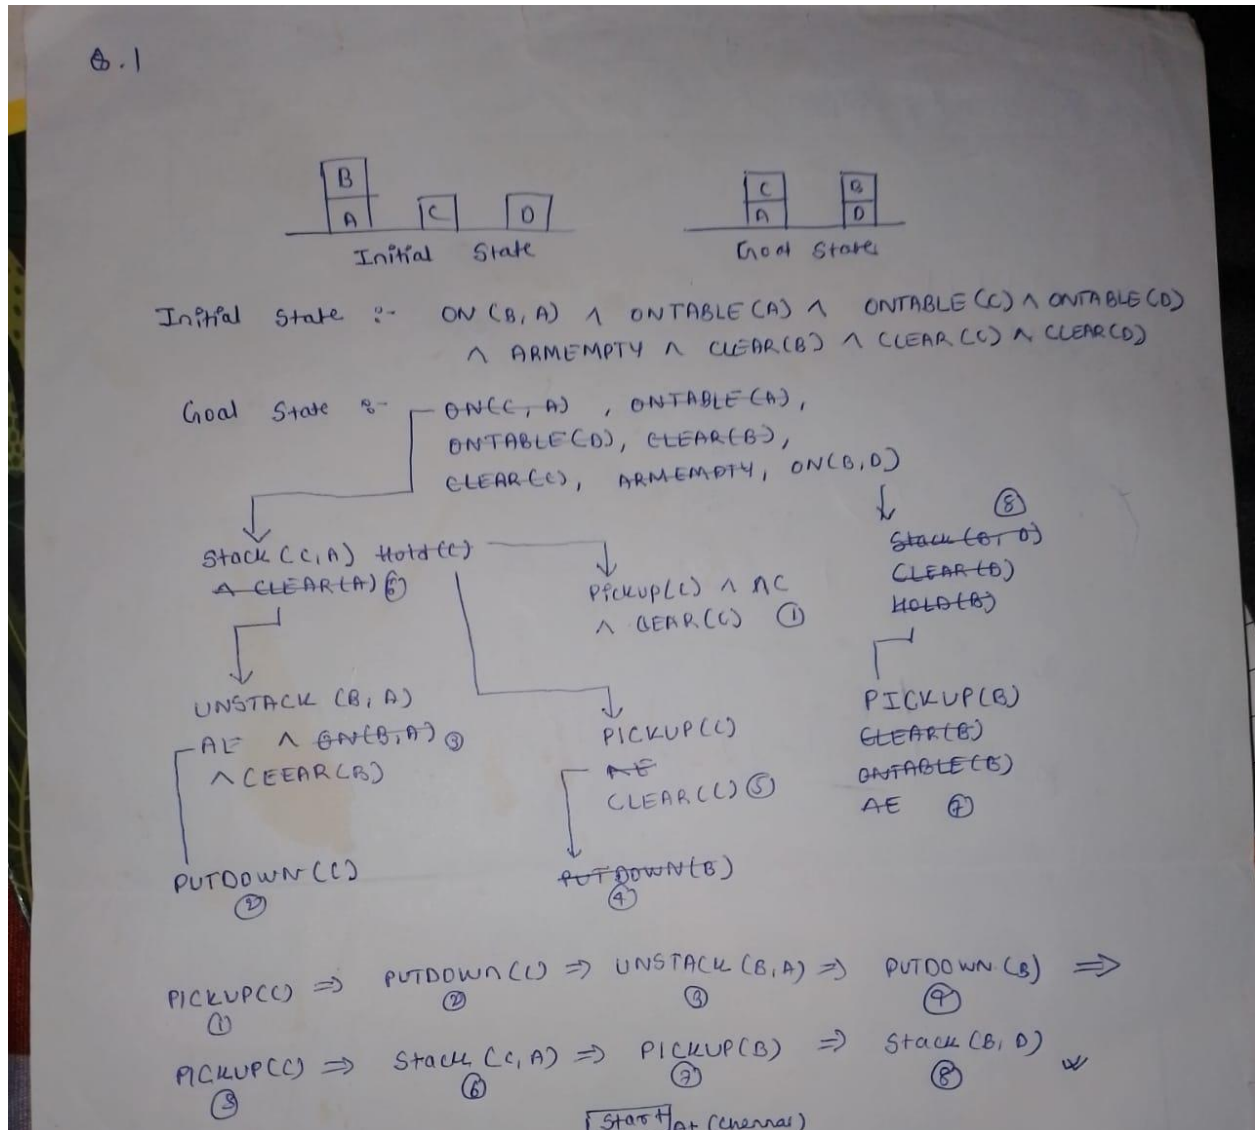 Q.1
B
A
C
D
Initial State
C
A
B
D
Goal State
Initial State :- ON(B,A) ∧ ONTABLE(A) ∧ ONTABLE(C) ∧ ONTABLE(D)
∧ ARMEMPTY ∧ CLEAR(B) ∧ CLEAR(C) ∧ CLEAR(D)
Goal State :- ON(C,A), ONTABLE(A),
ONTABLE(D), CLEAR(B),
CLEAR(C), ARMEMPTY, ON(B,D)
Stack(C,A) Hold(C)
∧ CLEAR(A) ⑥
Pickup(C) ∧ AC
∧ CEAR(C) ①
⑧
Stack(B,D)
CLEAR(D)
HOLD(B)
UNSTACK (B,A)
AE ∧ ON(B,A) ③
∧ CEEAR(B)
PICKUP(C)
AE
CLEAR(C) ⑤
PICKUP(B)
CLEAR(B)
ONTABLE(B)
AE ⑦
PUTDOWN(C)
②
PUTDOWN(B)
④
PICKUP(C) ⇒ PUTDOWN(C) ⇒ UNSTACK (B,A) ⇒ PUTDOWN(B) ⇒
① ② ③ ④
PICKUP(C) ⇒ Stack (C,A) ⇒ PICKUP(B) ⇒ Stack (B,D)
⑤ ⑥ ⑦ ⑧
Start At (Chennai)